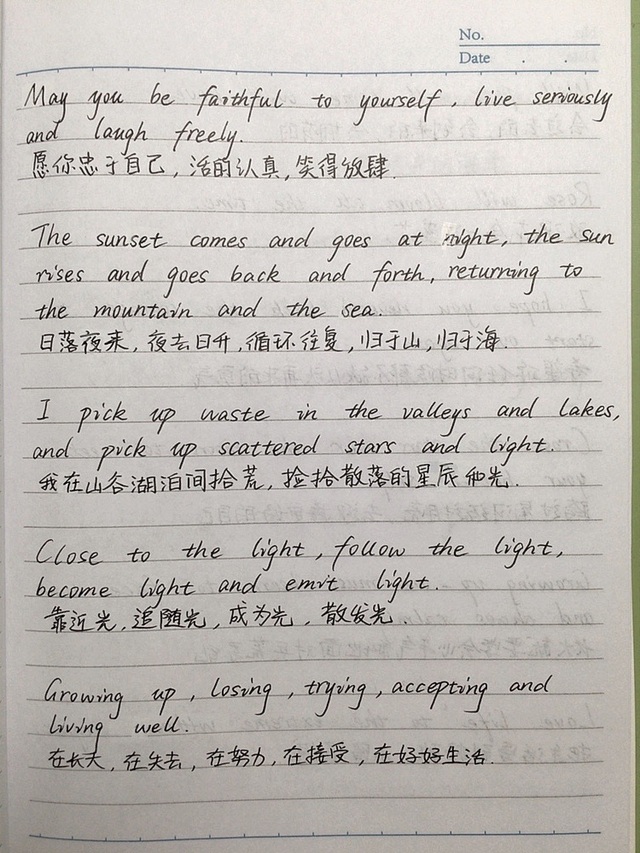 No.
Date . .
May you be faithful to yourself, live seriously
and laugh freely.
愿你忠于自己，活的认真，笑得放肆.
The sunset comes and goes at night, the sun
rises and goes back and forth, returning to
the mountain and the sea.
日落夜来，夜去日升，循环往复，归于山，归于海.
I pick up waste in the valleys and lakes,
and pick up scattered stars and light.
我在山谷湖泊间拾荒，捡拾散落的星辰和光.
Close to the light, follow the light,
become light and emit light.
靠近光，追随光，成为光，散发光.
Growing up, losing, trying, accepting and
living well.
在长大，在失去，在努力，在接受，在好好生活.